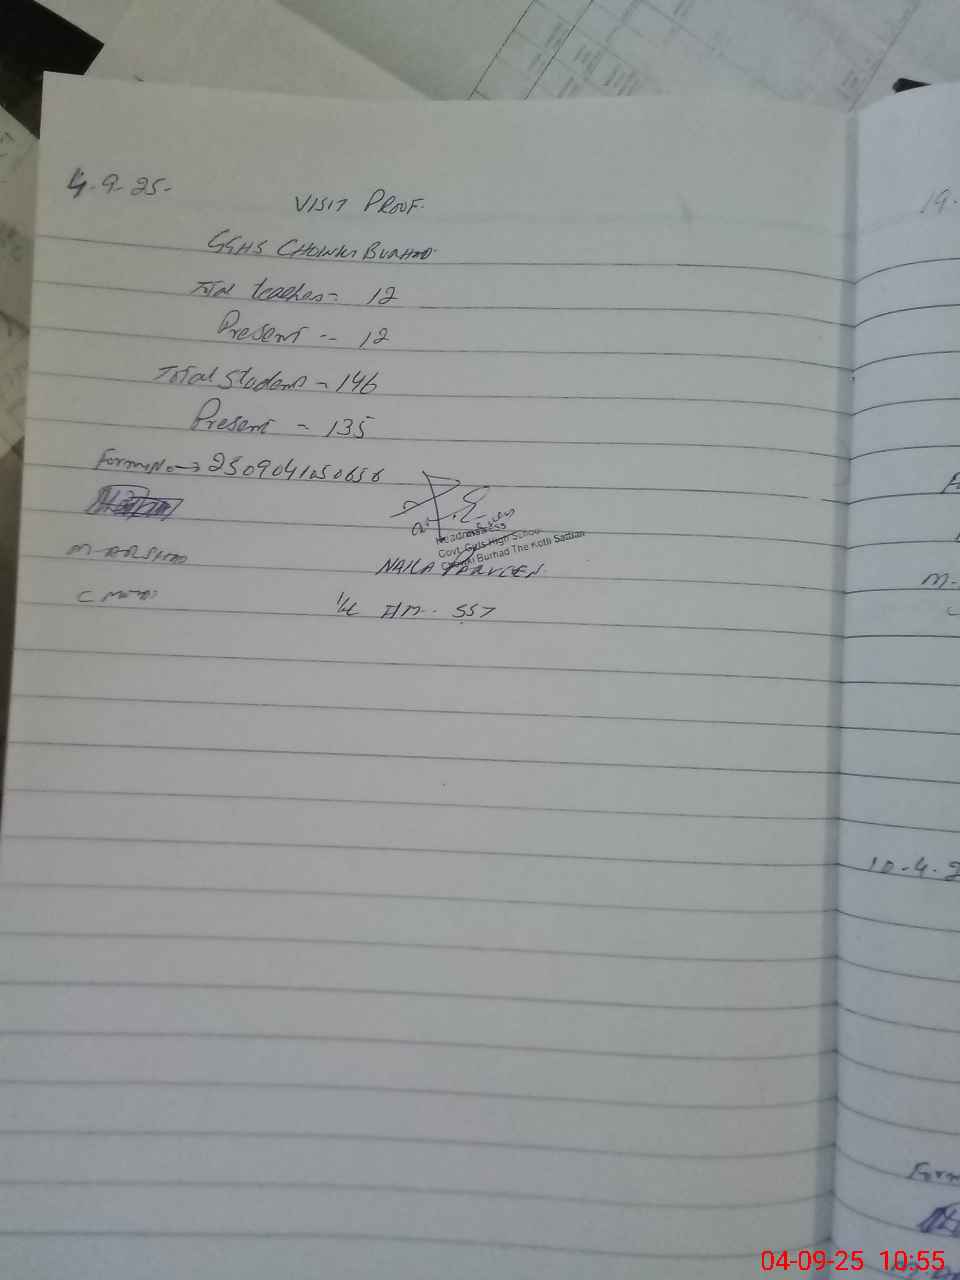 4-9-25-
VISIT PROOF.
GGHS CHOWKI BURHAD
Total teacher = 12
Present -- 12
Total Student - 146
Present - 135
Form No → 2509041050656
Headmistress
Govt. Girls High School
Chowki Burhad The Kotli Sattian
M-ARSHAD
NAILA PARVEEN.
I/C HM-- SST
19-
M-
10-4-2
Form
04-09-25 10:55